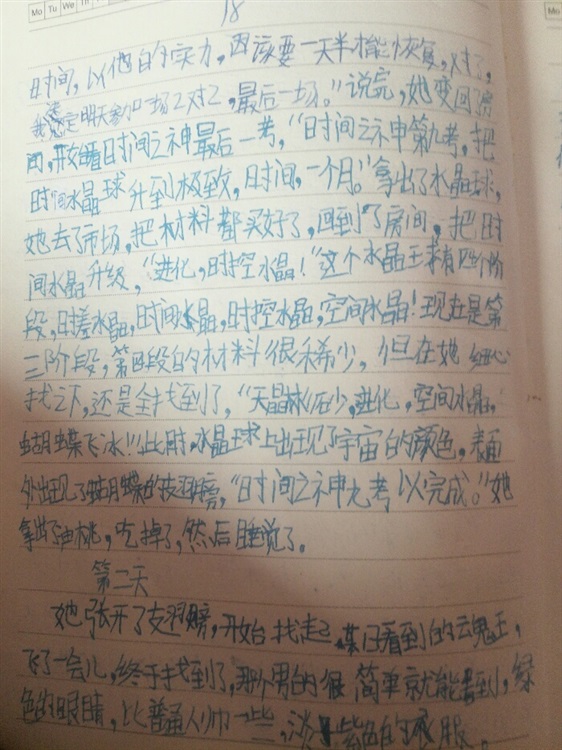 18
Mo Tu We Th
Mo
时间，以他的实力，因该要一天半才能恢复，对了，
我定明天参加一场2对2，最后一场。”说完，她变回房
间，开始时间之神最后一考，“时间之神第九考，把
时间水晶球升到极致，时间，一个月。”拿出了水晶球，
她去了市场，把材料都买好了，回到了房间，把时
间水晶升级，“进化，时控水晶！”这个水晶球有四个阶
段，时差水晶，时间水晶，时控水晶，空间水晶！现在是第
三阶段，第四段的材料很稀少，但在她细心
找之下，还是全找到了，“天晶冰石沙，进化，空间水晶，
蝴蝶飞冰!!!此时，水晶球上出现了宇宙的颜色，表面
外出现了蝴蝶的翅膀，“时间之神九考以完成。”她
拿出了油桃，吃掉了，然后睡觉了。
第二天
她张开了翅膀，开始找起 看到的魂王，
飞了一会儿，终于找到了，那个男的很简单就能看到，绿
色的眼睛，比普通人帅一些，淡紫色的衣服。